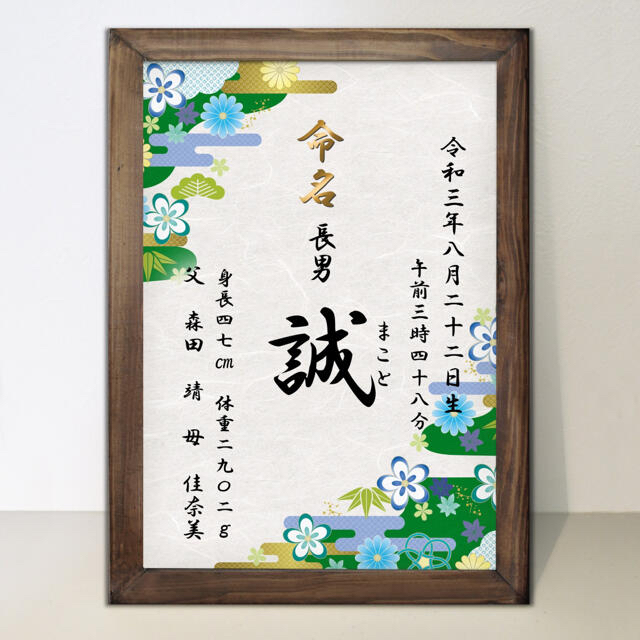 令和三年八月二十二日生
午前三時四十八分
命名
長男
誠
まこと
身長四七㎝ 体重二九〇二g
父 森田 靖 母 佳奈美